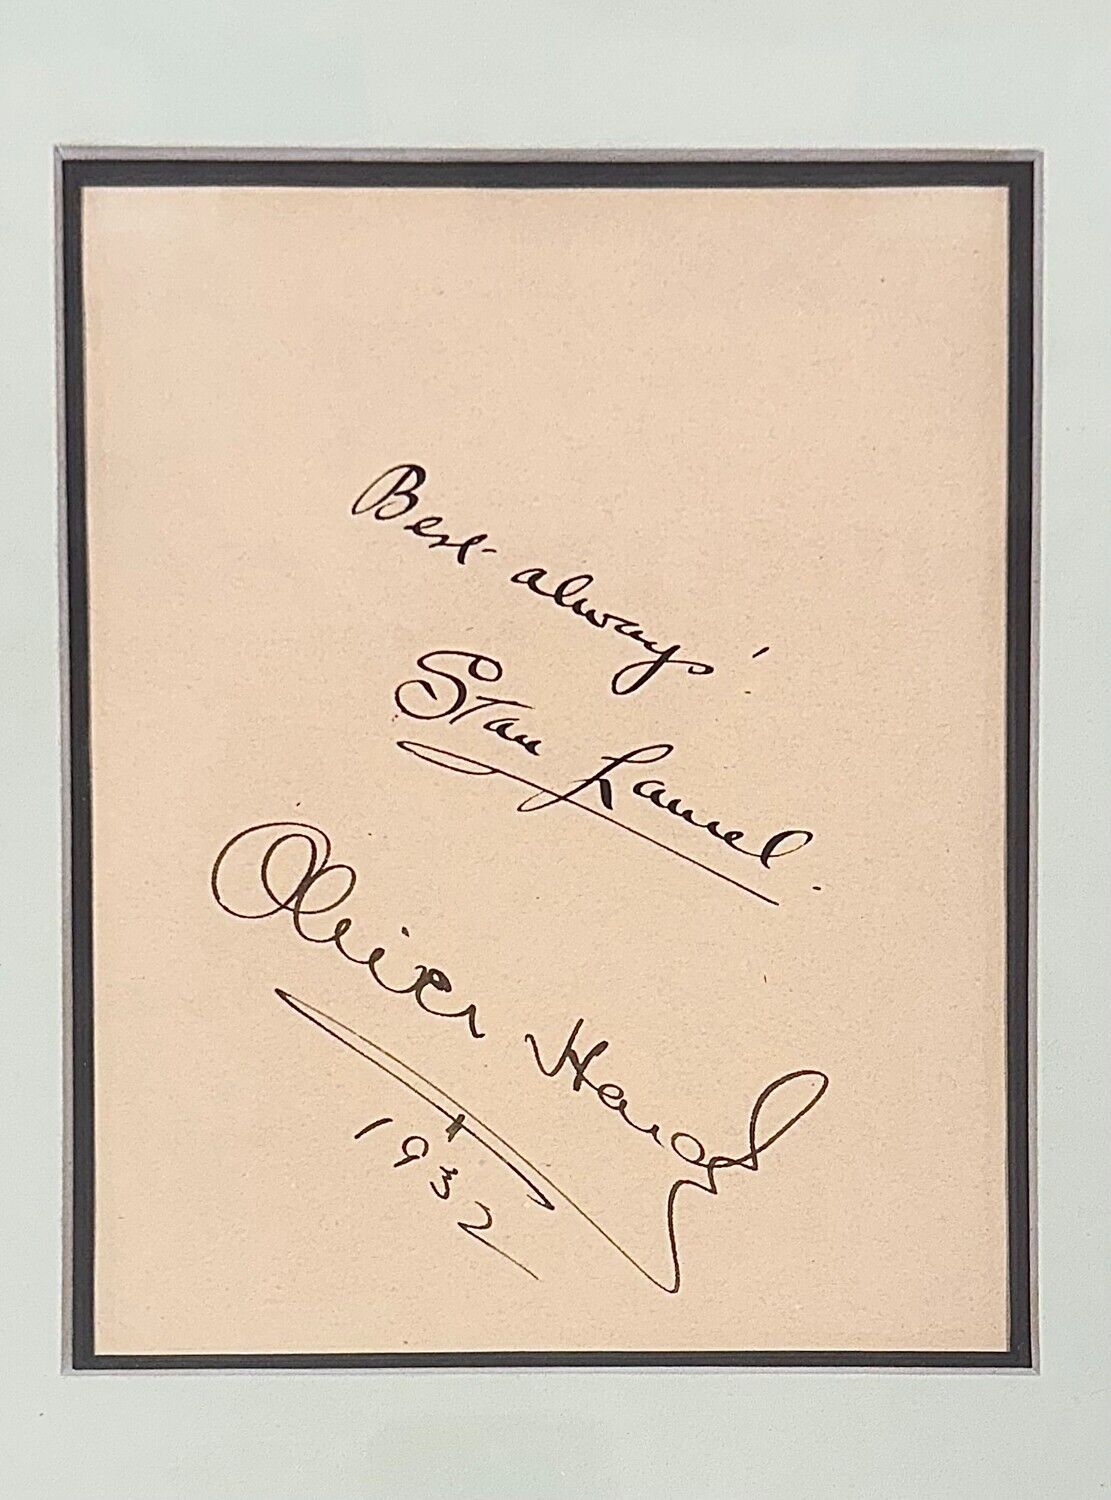 Best always!
Stan Laurel.
Oliver Hardy
1932